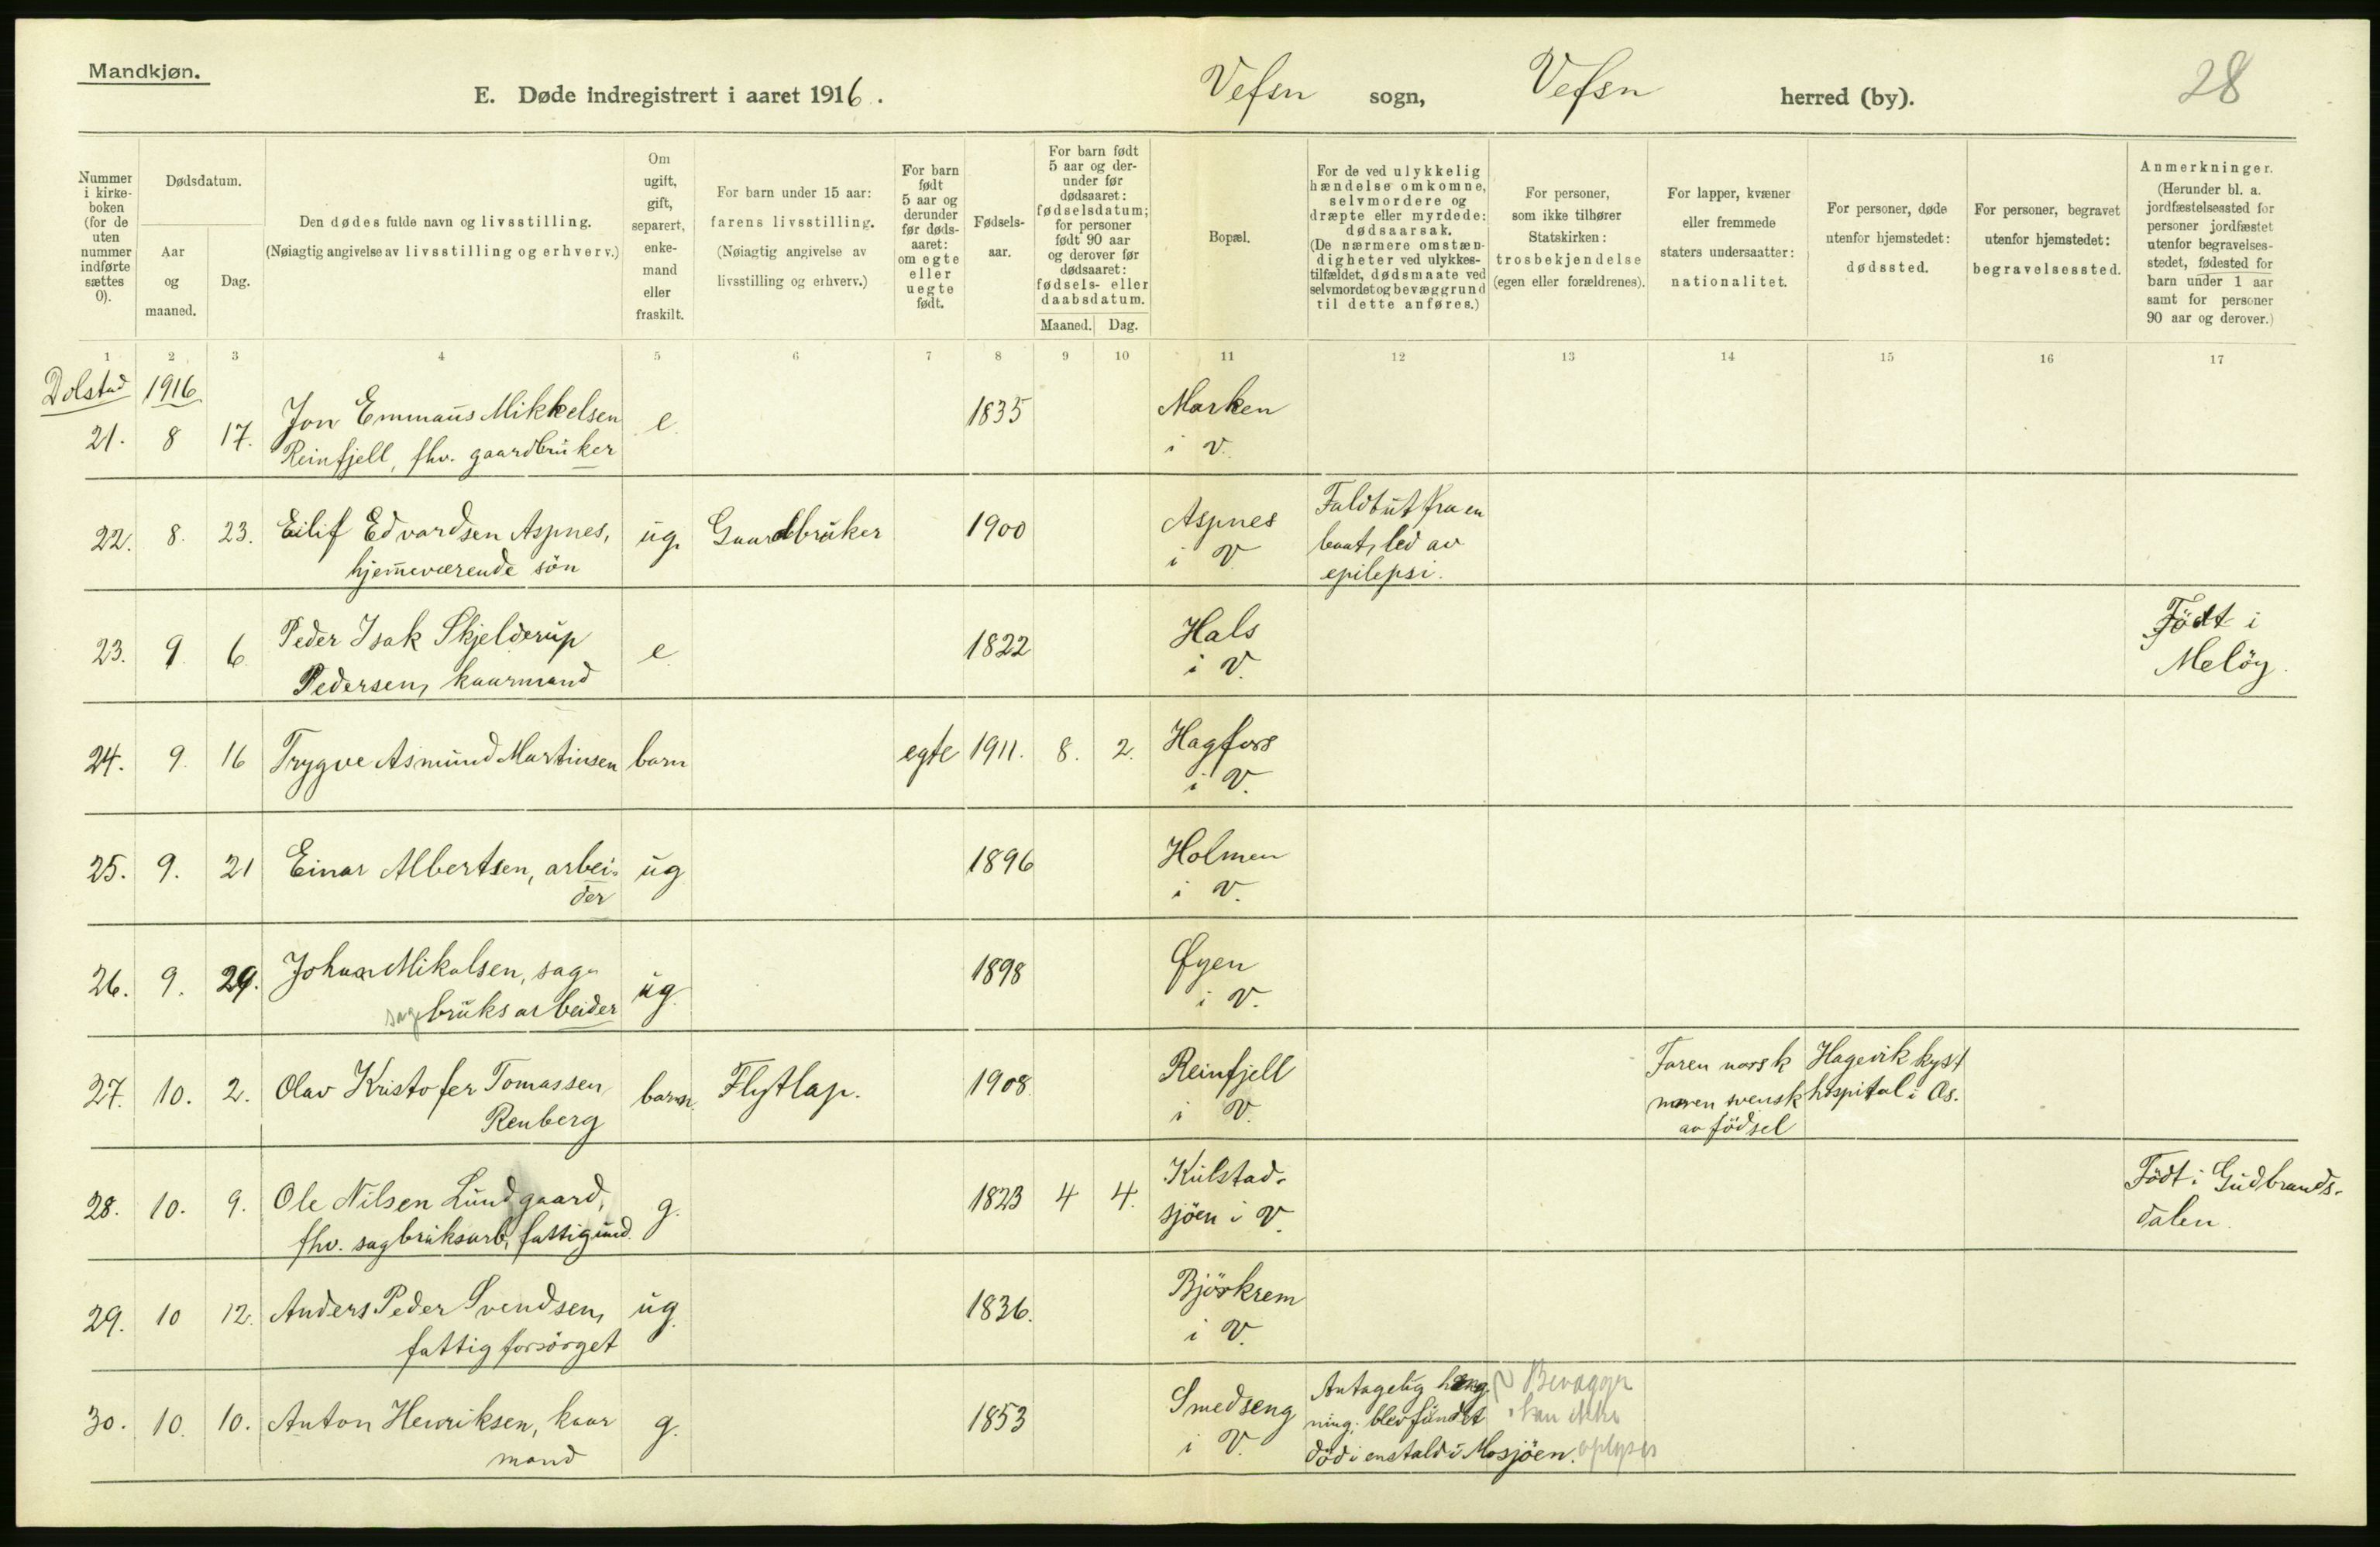 Mandkjøn.
E. Døde indregistrert i aaret 1916. Vefsn sogn, Vefsn herred (by). 28
Nummer i kirkeboken (for de uten nummer indførte sættes 0).
Dødsdatum.
Aar og maaned.
Dag.
Den dødes fulde navn og livsstilling.
(Nøiagtig angivelse av livsstilling og erhverv.)
Om ugift, gift, separert, enkemand eller fraskilt.
For barn under 15 aar:
farens livsstilling.
(Nøiagtig angivelse av livsstilling og erhverv.)
For barn født 5 aar og derunder før dødsaaret: om egte eller uegte født.
Fødselsaar.
For barn født 5 aar og derunder før dødsaaret: fødselsdatum; for personer født 90 aar og derover før dødsaaret: fødsels- eller daabsdatum.
Maaned. Dag.
Bopæl.
For de ved ulykkelig hændelse omkomne, selvmordere og dræpte eller myrdede: dødsaarsak.
(De nærmere omstændigheter ved ulykkestilfældet, dødsmaate ved selvmordet og bevæggrund til dette anføres.)
For personer, som ikke tilhører Statskirken: trosbekjendelse (egen eller forældrenes).
For lapper, kvæner eller fremmede staters undersaatter: nationalitet.
For personer, døde utenfor hjemstedet: dødssted.
For personer, begravet utenfor hjemstedet: begravelsessted.
Anmerkninger.
(Herunder bl. a. jordfæstelsessted for personer jordfæstet utenfor begravelsesstedet, fødested for barn under 1 aar samt for personer 90 aar og derover.)
1 2 3 4 5 6 7 8 9 10 11 12 13 14 15 16 17
Dolstad 1916
21. 8 17. Jon Emmaus Mikkelsen e. 1835 Marken
Reinfjell, fhv. gaardbruker i V.
22. 8. 23. Eilif Edvardsen Aspnes, ug. Gaardbruker 1900 Aspnes Faldt ut fra en
hjemeværende sön i V. baat, led av
epilepsi.
23. 9. 6. Peder Isak Skjelderup e. 1822 Hals Födt i
Pedersen, kaarmand i V. Melöy.
24. 9. 16 Trygve Asmund Martinsen barn egte 1911. 8. 2. Hagfors
i V.
25. 9. 21 Einar Albertsen, arbei- ug 1896 Holmen
der i V.
26. 9. 29. Johan Mikalsen, sag- ug. 1898 Øyen
sagbruksarbeider i V.
27. 10. 2. Olav Kristofer Tomassen barn. Flytlap. 1908 Reinfjell Faren norsk Hagevik kyst
Renberg i V. moren svensk hospital i Os.
av födsel
28. 10. 9. Ole Nilsen Lundgaard, g. 1823 4 4. Kulstad- Födt i Gudbrands-
fhv. sagbruksarb, fattigund. sjöen i V. dalen.
29. 10 12. Anders Peder Svendsen, ug. 1836. Björkrem
fattigforsörget i V.
30. 10. 10. Anton Henriksen, kaar g. 1853 Smedseng Antagelig hæng Bevæggr
mand i V. ning; blev fundet kan ikke
död i en stald i Mosjöen. oplyses